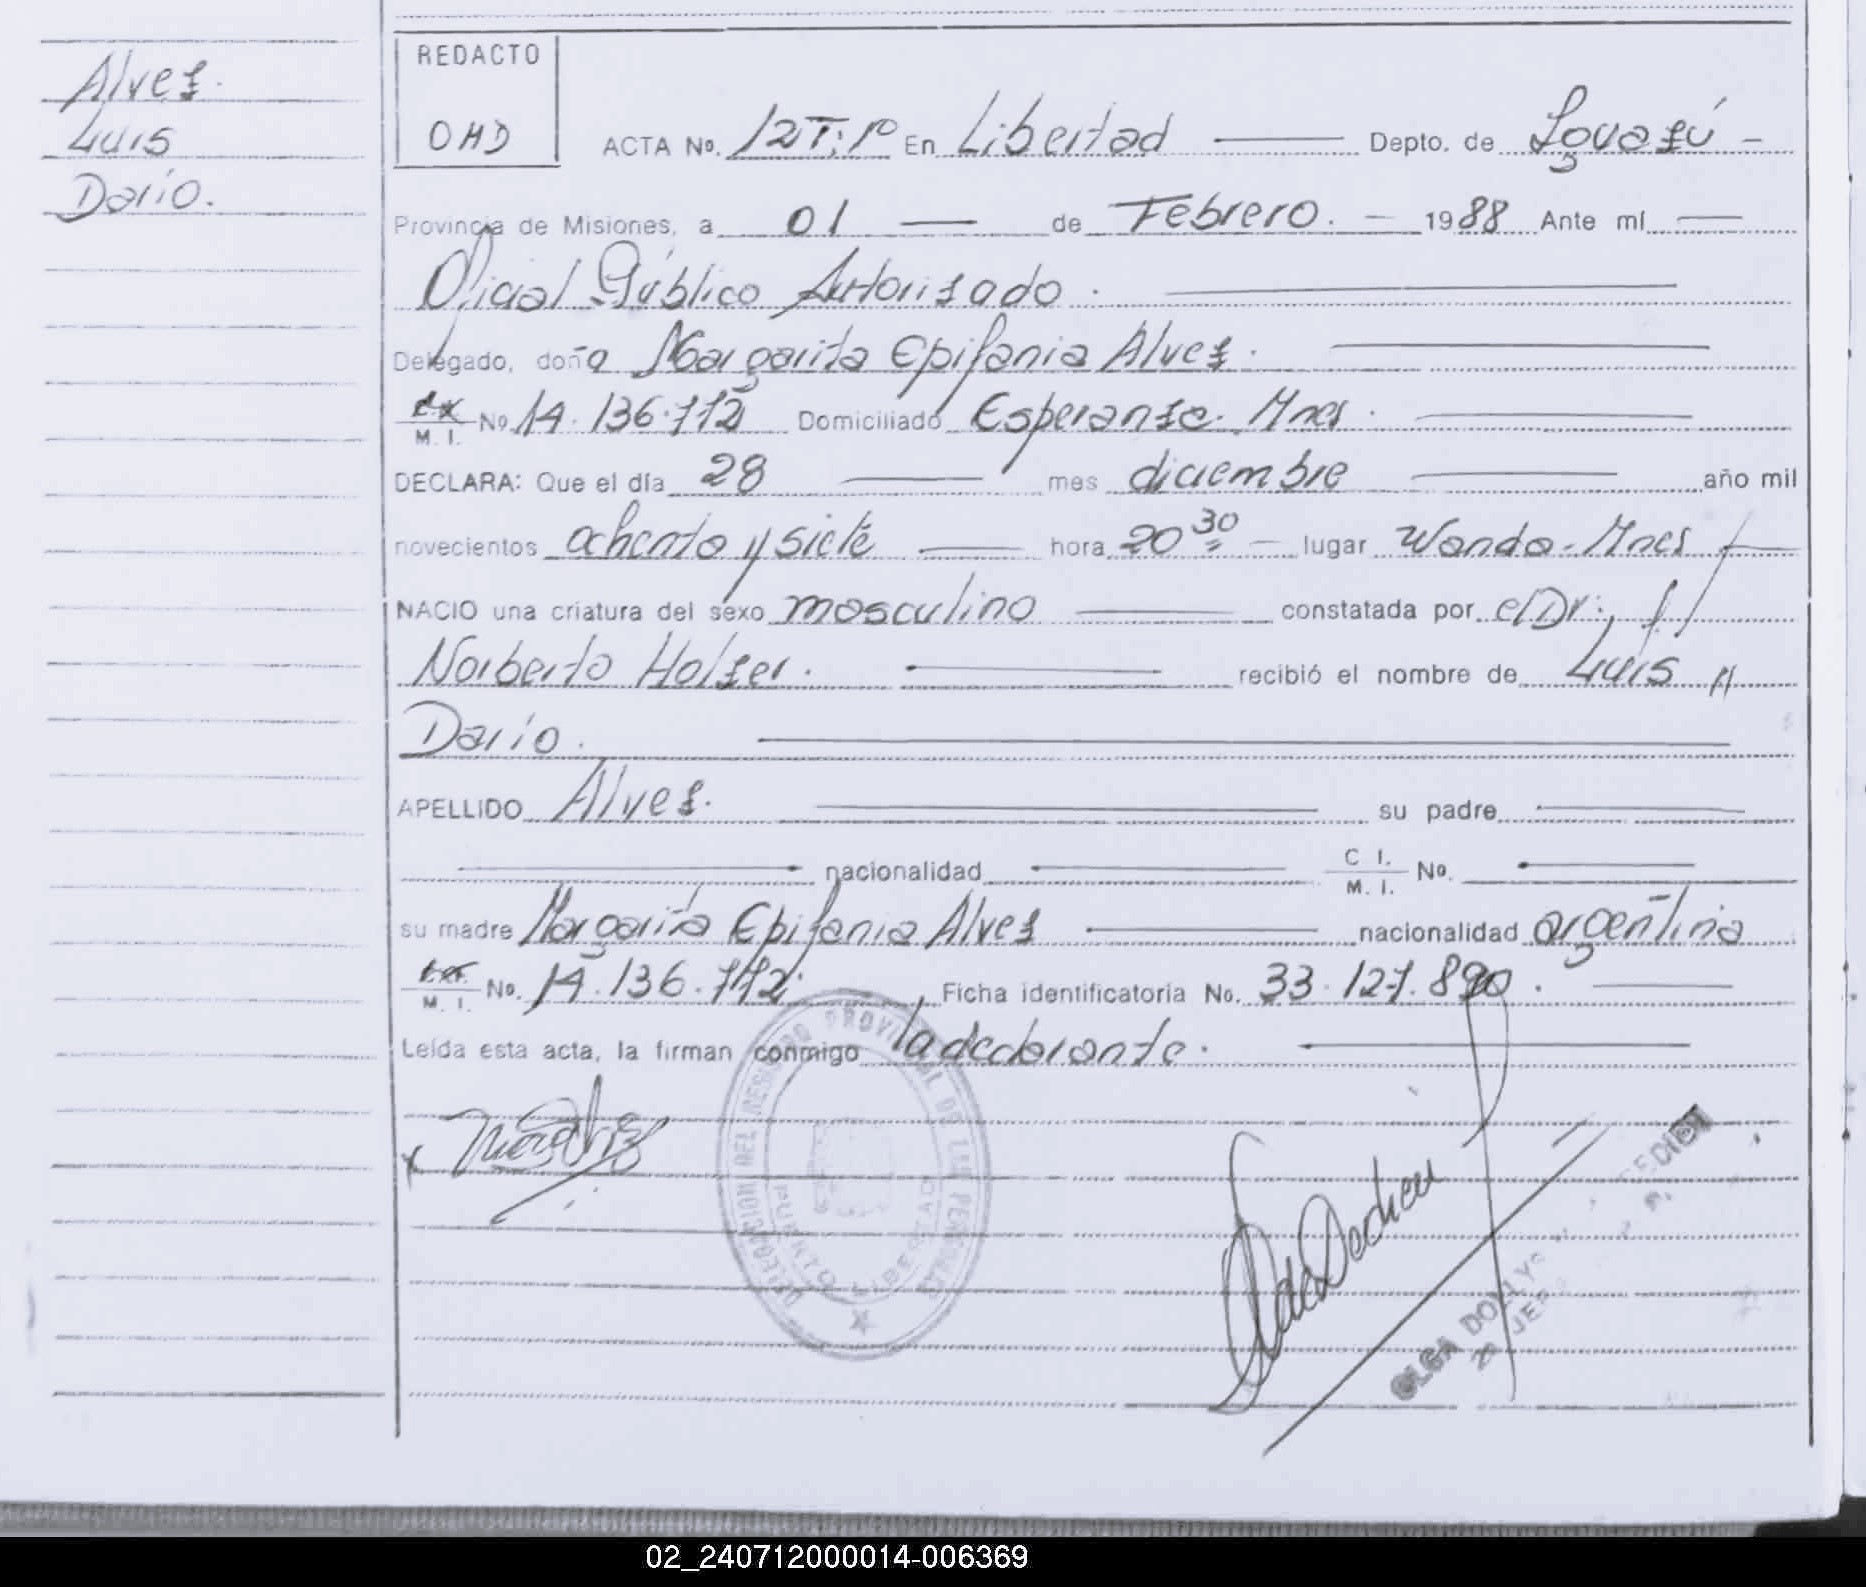 Alvez.
Luis
Darío.
REDACTO
OHD
ACTA No. 12 T:1º En Libertad Depto. de Iguazú -
Provincia de Misiones, a 01 de Febrero. - 1988 Ante mí
Oficial Público Autorizado.
Delegado, doña Margarita Epifania Alvez.
M. I. No. 14.136.772 Domiciliado Esperanza. Mnes.
DECLARA: Que el día 28 mes diciembre año mil
novecientos ochenta y siete hora 20 30 - lugar Wanda-Mnes
NACIO una criatura del sexo masculino constatada por el Dr:
Norberto Holzer. recibió el nombre de Luis
Darío.
APELLIDO Alvez. su padre
nacionalidad C I. M. I. No.
su madre Margarita Epifania Alvez nacionalidad argentina
M. I. No. 14.136.772. Ficha identificatoria No. 33.127.890.
Leída esta acta, la firman conmigo la declarante.
DELEGACION DEL REGISTRO PROVINCIAL DE LAS PERSONAS
PUERTO LIBERTAD
OLGA DOLLYS
02_240712000014-006369